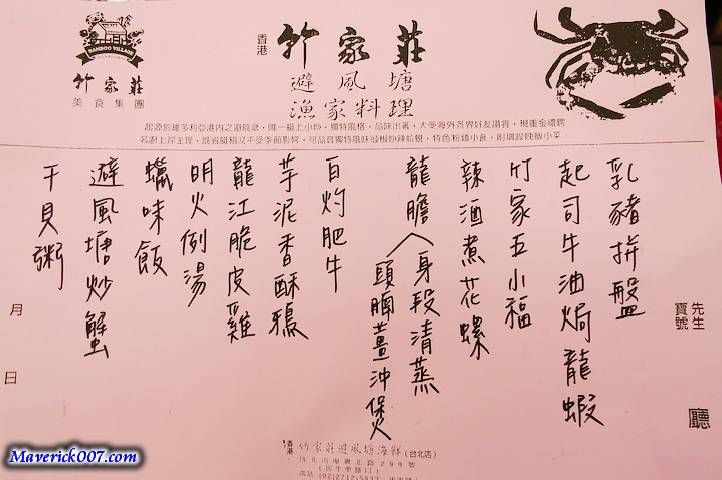 BAMBOO VILLAGE
竹家莊
美食集團
香港
竹家莊
避風塘
漁家料理
先生
寶號
廳
乳豬拼盤
起司牛油焗龍蝦
竹家五小福
辣酒煮花螺
龍膽
身段清蒸
頭腩薑沖煲
白灼肥牛
芋泥香酥鴉
龍江脆皮雞
明火例湯
蠟味飯
避風塘炒蟹
干貝粥
月 日
香港
竹家莊避風塘海鮮(台北店)
Maverick007.com